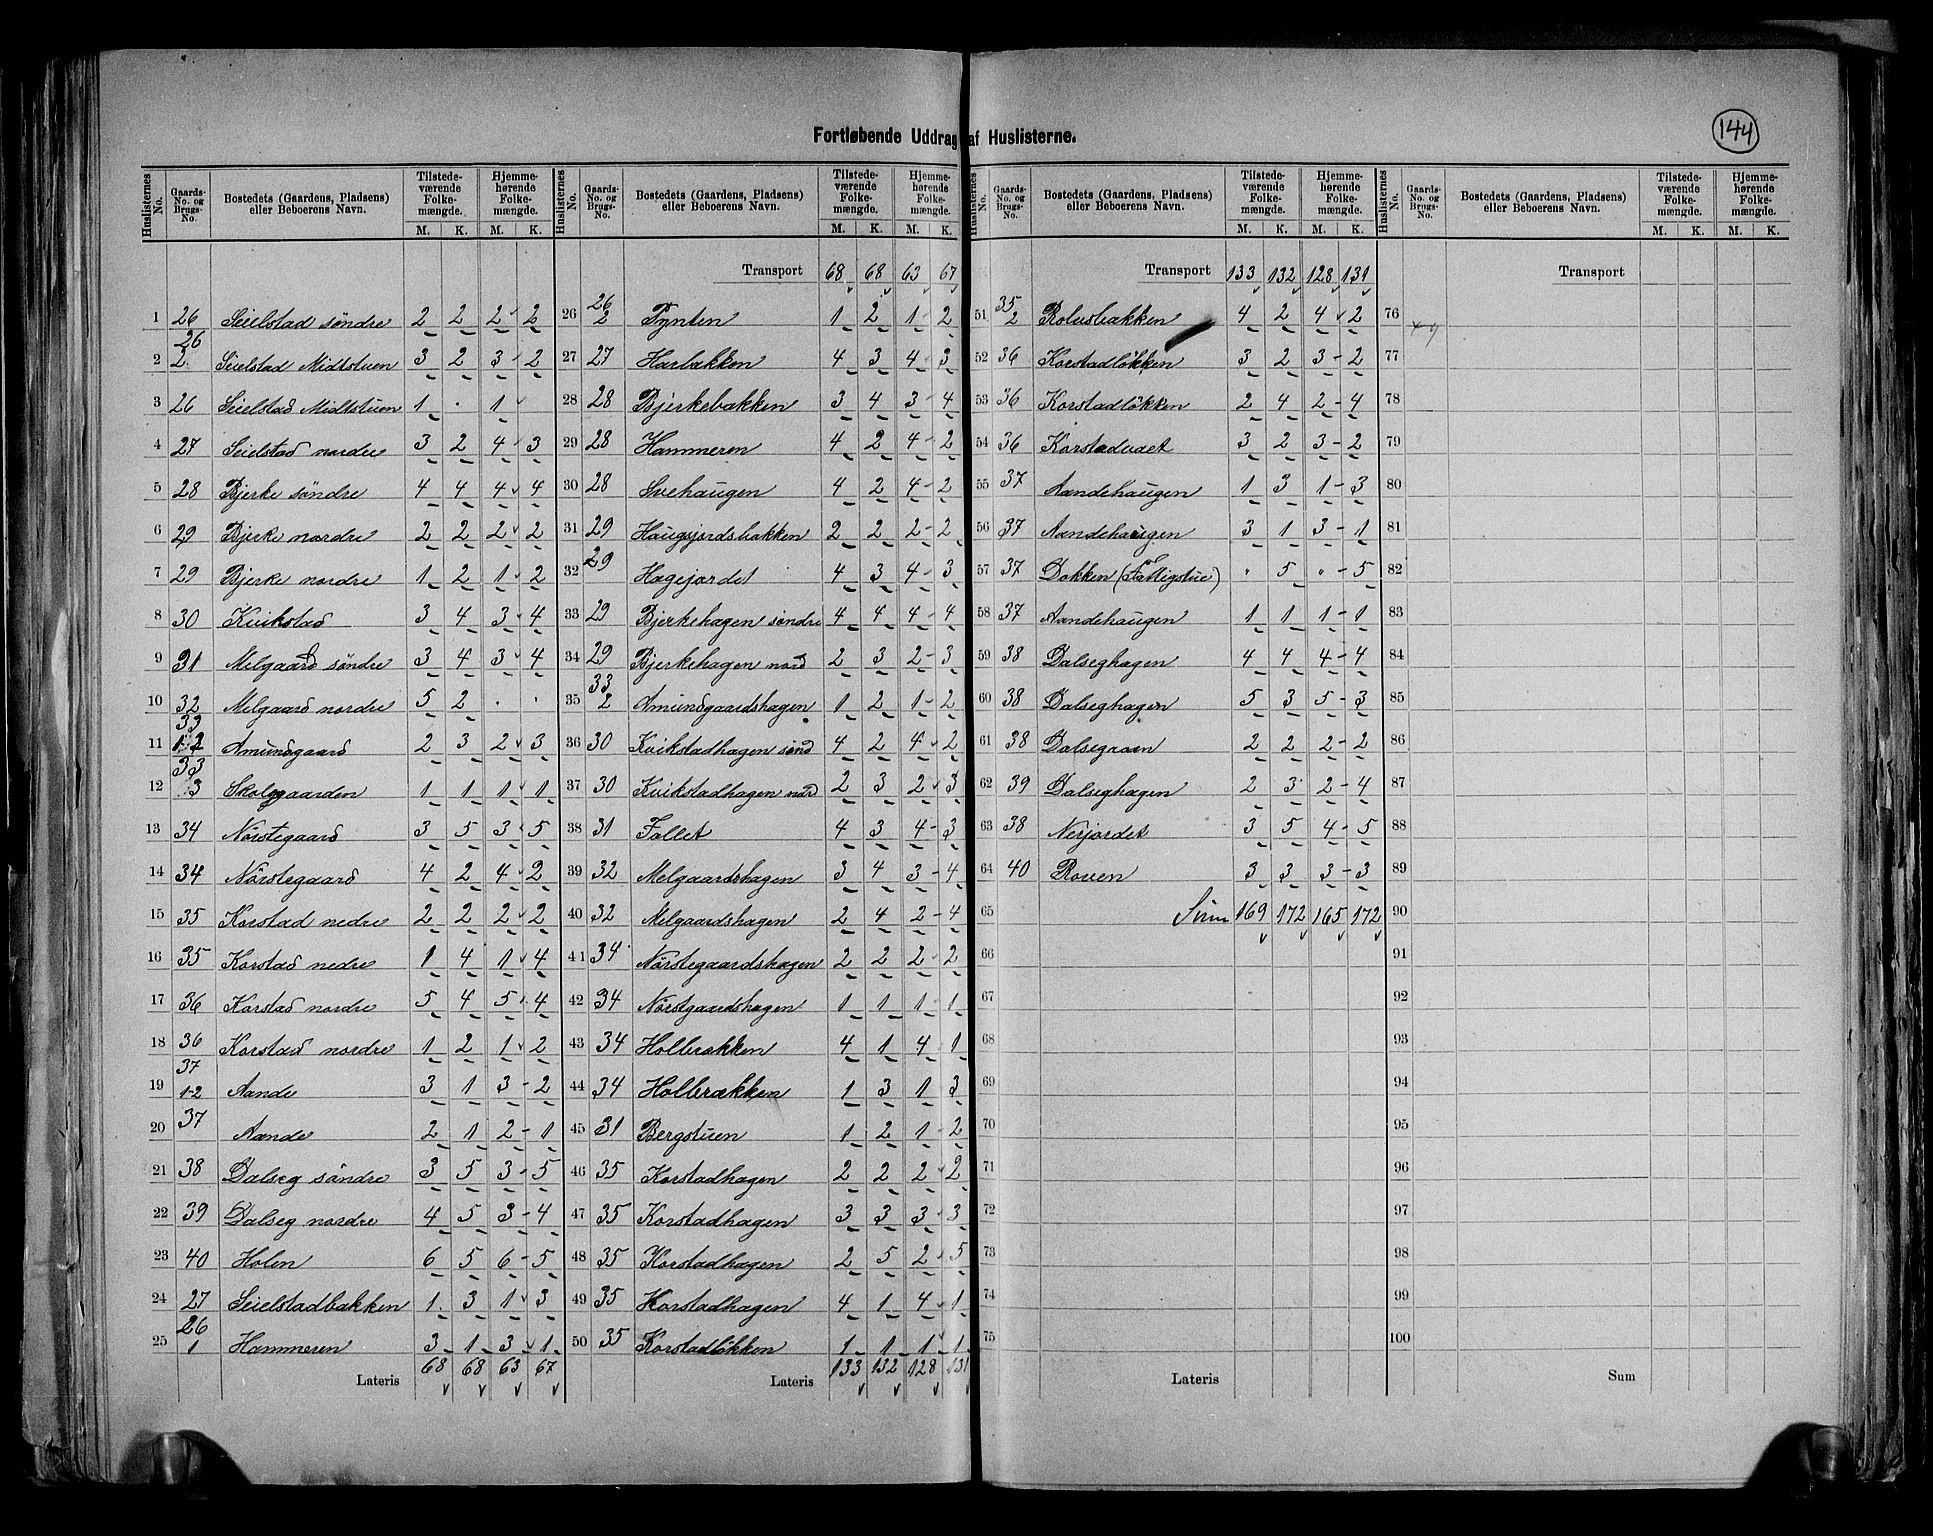 144
Fortløbende Uddrag af Huslisterne.
Huslisternes No. Gaards-No. og Brugs-No. Bostedets (Gaardens, Pladsens) eller Beboerens Navn. Tilstedeværende Folkemængde. M. K. Hjemmehørende Folkemængde. M. K.
1 26 Seielstad söndre 2 2 2 2
2 26 2 Seielstad Midtstuen 3 2 3 2
3 26 Seielstad Midtstuen 1 . 1
4 27 Seielstad nordre 3 2 4 3
5 28 Bjerke söndre 4 4 4 4
6 29 Bjerke nordre 2 2 2 2
7 29 Bjerke nordre 1 2 1 2
8 30 Kvikstad 3 4 3 4
9 31 Melgaard söndre 3 4 3 4
10 32 Melgaard nordre 5 2 . .
11 33 1-2 Amundgaard 2 3 2 3
12 33 3 Skolegaarden 1 1 1 1
13 34 Nörstegaard 3 5 3 5
14 34 Nörstegaard 4 2 4 2
15 35 Korstad nedre 2 2 2 2
16 35 Korstad nedre 1 4 1 4
17 36 Korstad nordre 5 4 5 4
18 36 Korstad nordre 1 2 1 2
19 37 1-2 Aande 3 1 3 2
20 37 Aande 2 1 2 1
21 38 Dalseg söndre 3 5 3 5
22 39 Dalseg nordre 4 5 3 4
23 40 Holen 6 5 6 5
24 27 Seielstadbakken 1 3 1 3
25 26 1 Hammeren 3 1 3 1
Lateris 68 68 63 67
Huslisternes No. Gaards-No. og Brugs-No. Bostedets (Gaardens, Pladsens) eller Beboerens Navn. Tilstedeværende Folkemængde. M. K. Hjemmehørende Folkemængde. M. K.
Transport 68 68 63 67
26 26 2 Pynten 1 2 1 2
27 27 Harbakken 4 3 4 3
28 28 Bjerkebakken 3 4 3 4
29 28 Hammeren 4 2 4 2
30 28 Svehaugen 4 2 4 2
31 29 Haugsjordsbakken 2 2 2 2
32 29 Hagejordet 4 3 4 3
33 29 Bjerkehagen söndre 4 4 4 4
34 29 Bjerkehagen nord 2 3 2 3
35 33 2 Amundgaardshagen 1 2 1 2
36 30 Kvikstadhagen sönd 4 2 4 2
37 30 Kvikstadhagen nord 2 3 2 3
38 31 Fallet 4 3 4 3
39 32 Melgaardshagen 3 4 3 4
40 32 Melgaardshagen 2 4 2 4
41 34 Nörstegaardshagen 2 2 2 2
42 34 Nörstgaardshagen 1 1 1 1
43 34 Holbrækken 4 1 4 1
44 34 Holbrækken 1 3 1 3
45 31 Bergstuen 1 2 1 2
46 35 Korstadhagen 2 2 2 2
47 35 Korstadhagen 3 3 3 3
48 35 Korstadhagen 2 5 2 5
49 35 Korstadhagen 4 1 4 1
50 35 Korstadlökken 1 1 1 1
Lateris 133 132 128 131
No. Gaards-No. og Brugs-No. Bostedets (Gaardens, Pladsens) eller Beboerens Navn. Tilstedeværende Folkemængde. M. K. Hjemmehørende Folkemængde. M. K.
Transport 133 132 128 131
51 35 2 Rolusbakken 4 2 4 2
52 36 Korstadlökken 3 2 3 2
53 36 Korstadlökken 2 4 2 4
54 36 3 2 3 2
55 37 Aandehaugen 1 3 1 3
56 37 Aandehaugen 3 1 3 1
57 37 Dokken (Fattigstue) " 5 " 5
58 37 Aandehaugen 1 1 1 1
59 38 Dalseghagen 4 4 4 4
60 38 Dalseghagen 5 3 5 3
61 38 2 2 2 2
62 39 Dalseghagen 2 3 2 4
63 38 Nerjordet 3 5 4 5
64 40 Roen 3 3 3 3
65 Sum 169 172 165 172
66
67
68
69
70
71
72
73
74
75
Lateris
Huslisternes No. Gaards-No. og Brugs-No. Bostedets (Gaardens, Pladsens) eller Beboerens Navn. Tilstedeværende Folkemængde. M. K. Hjemmehørende Folkemængde. M. K.
Transport
76
77
78
79
80
81
82
83
84
85
86
87
88
89
90
91
92
93
94
95
96
97
98
99
100
Sum